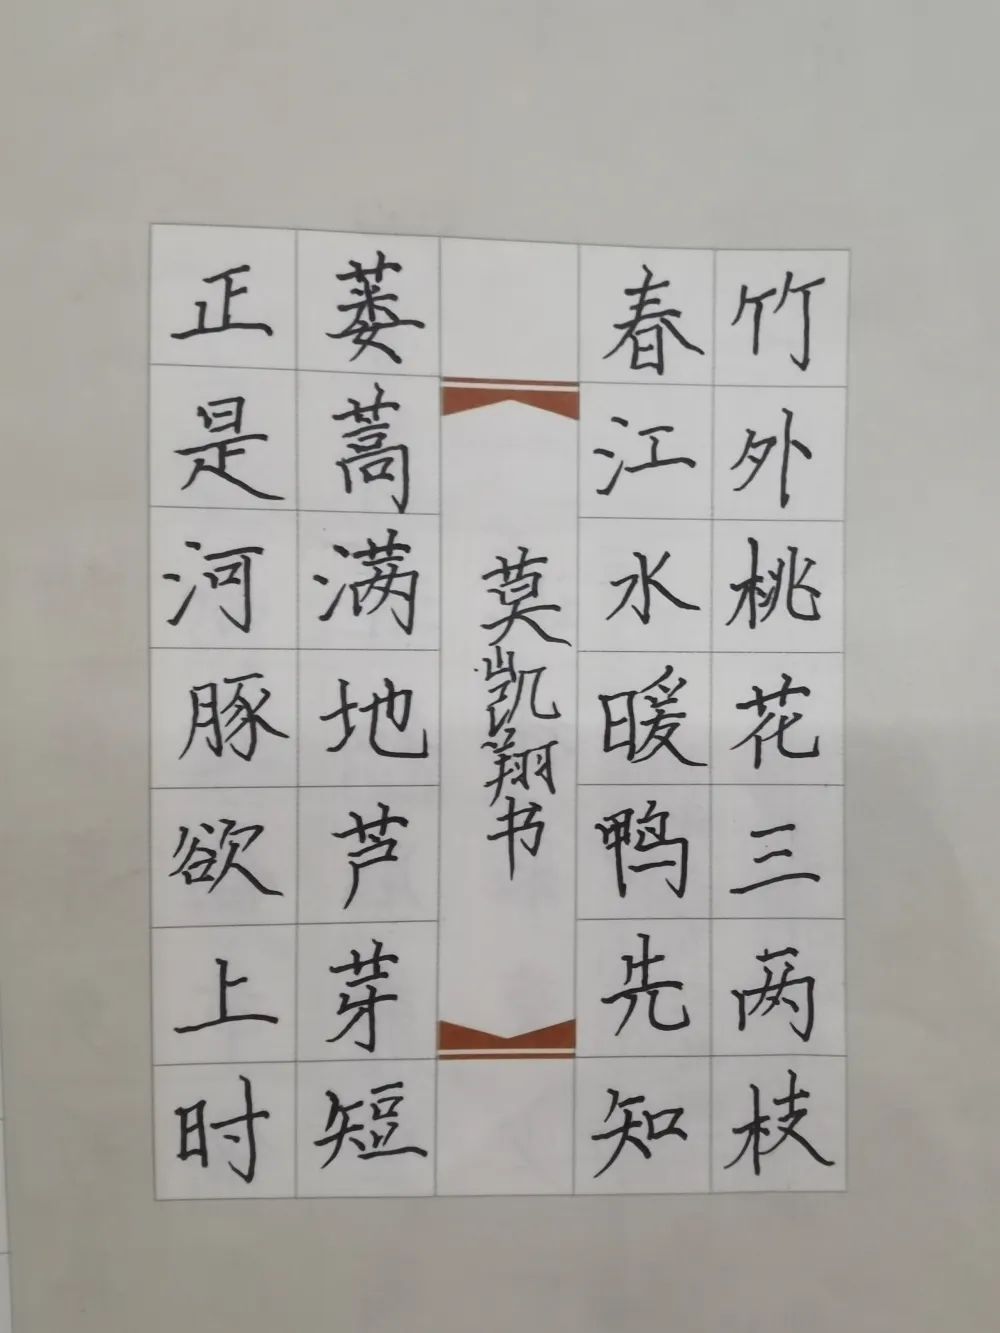 竹外桃花三两枝
春江水暖鸭先知
莫凯翔书
蒌蒿满地芦芽短
正是河豚欲上时